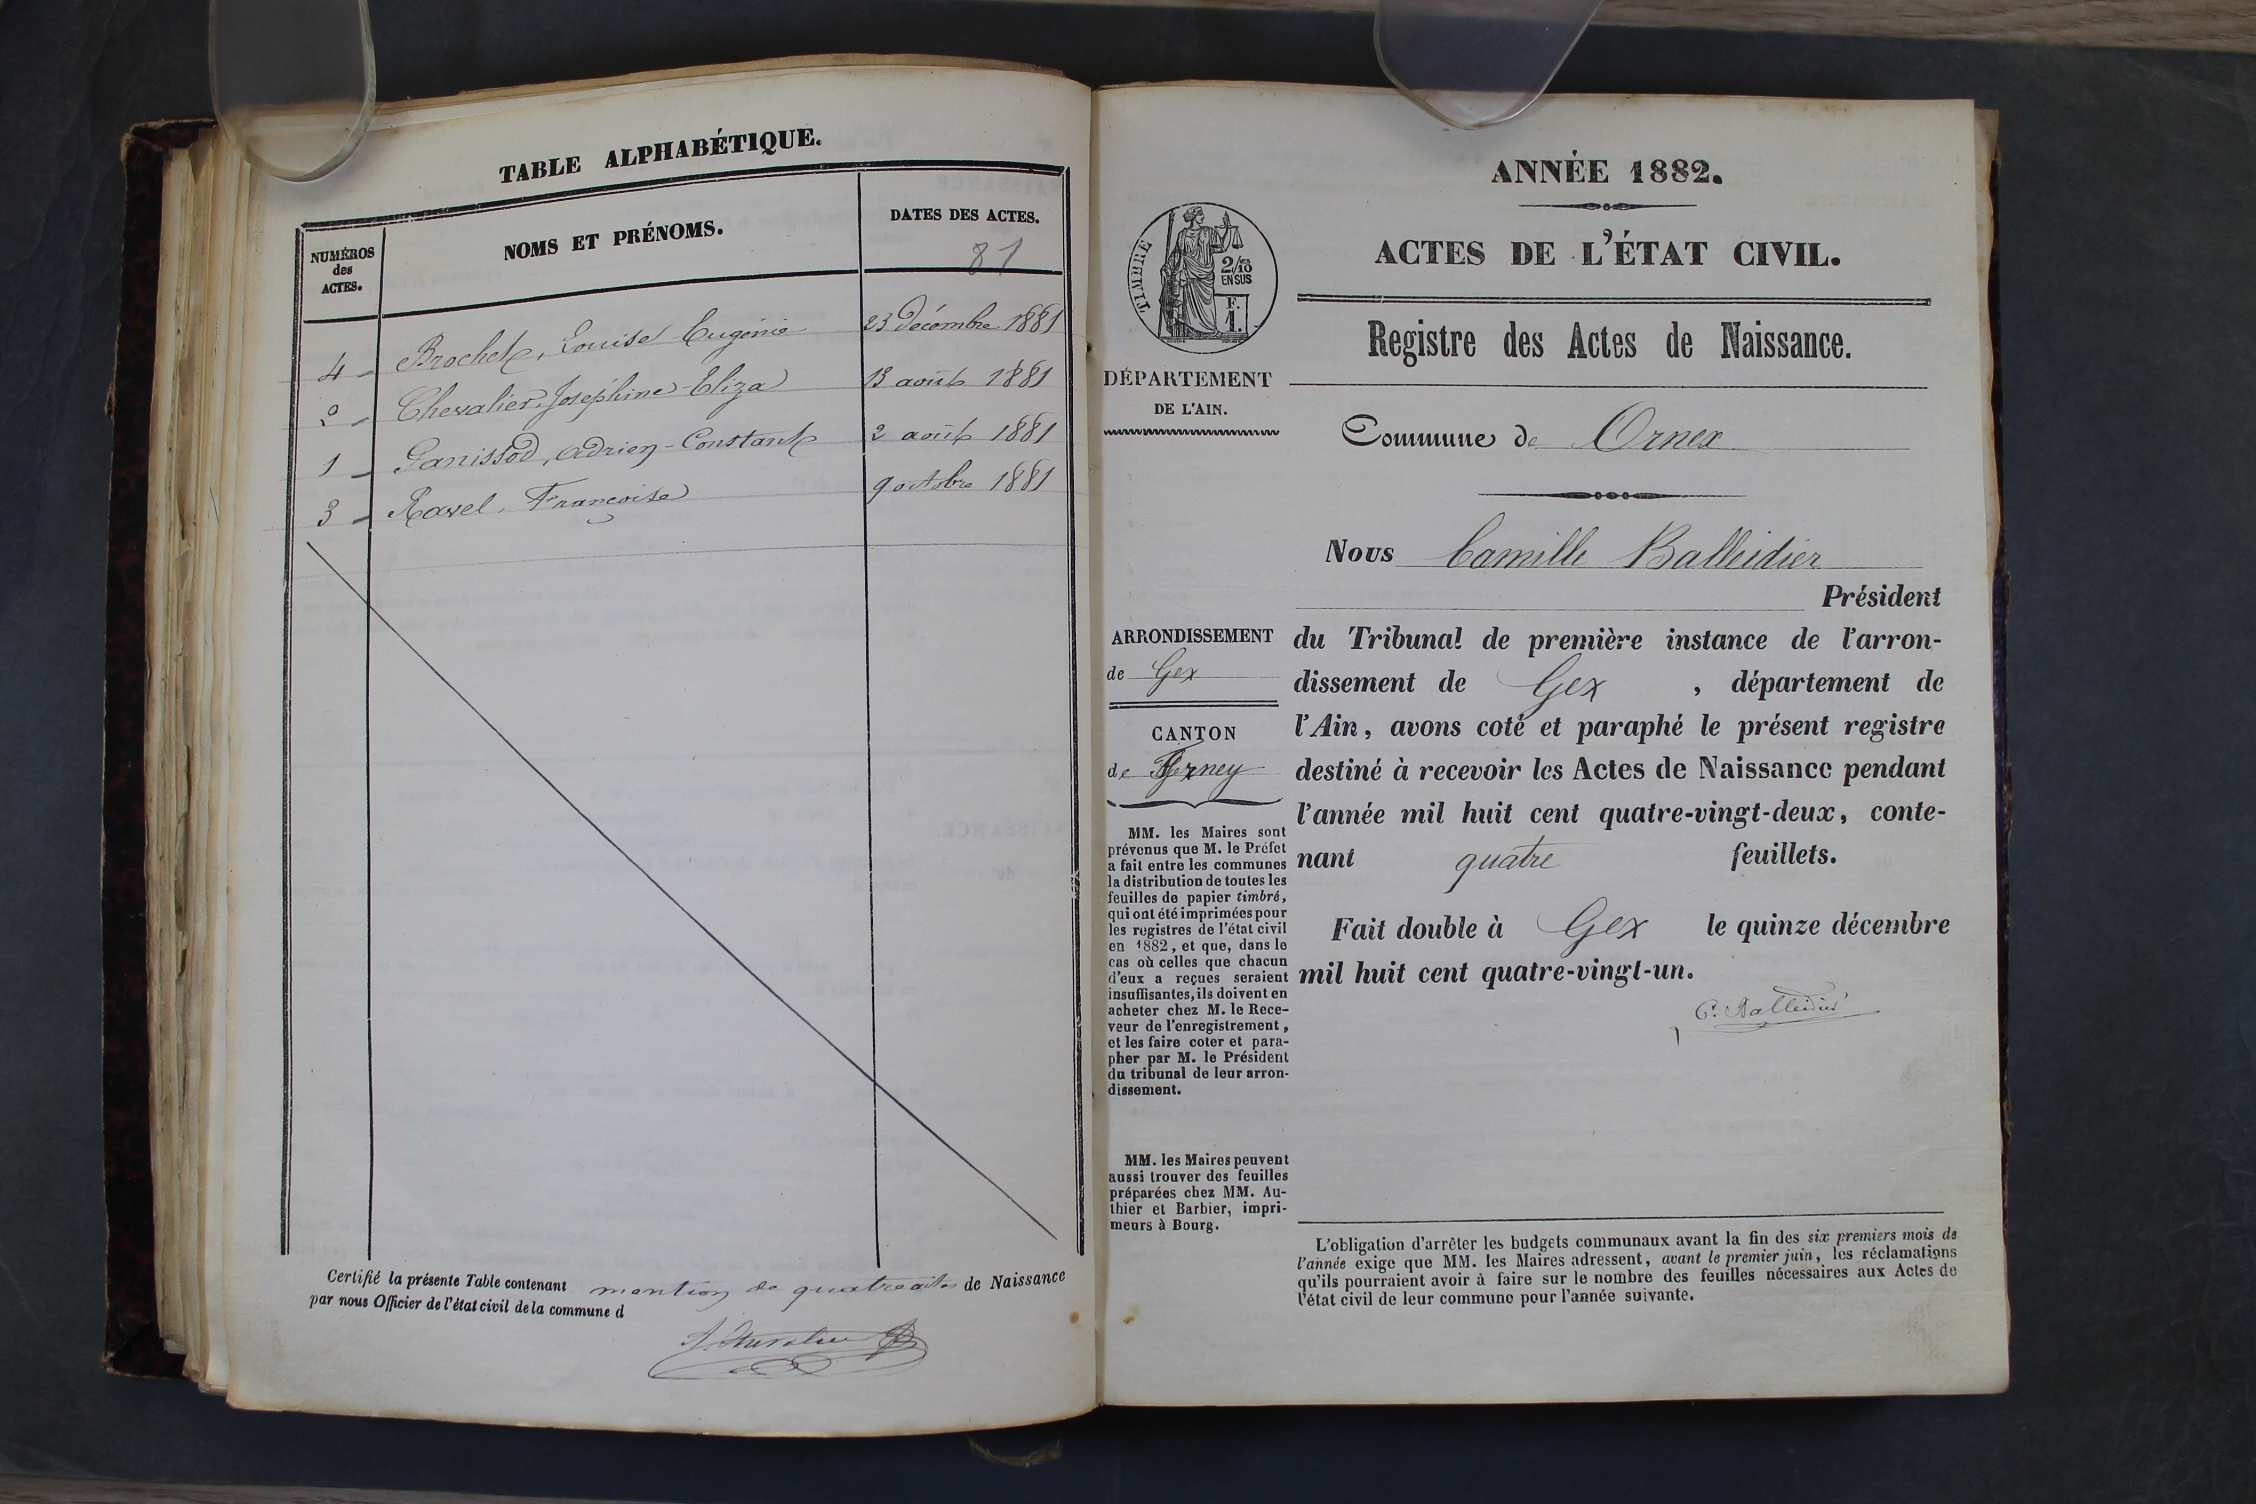 TABLE ALPHABÉTIQUE.
NUMÉROS
des
ACTES.
NOMS ET PRÉNOMS.
DATES DES ACTES.
81
4 Brochet, Louise Eugénie 23 décembre 1881
2 Chevalier, Joséphine Eliza 13 août 1881
1 Ganissod, Adrien-Constant 2 août 1881
3 Ravel, Françoise 9 octobre 1881
Certifié la présente Table contenant mention de quatre actes de Naissance
par nous Officier de l'état civil de la commune d
ANNÉE 1882.
ACTES DE L'ÉTAT CIVIL.
TIMBRE
2/10
EN SUS
F.
1.
Registre des Actes de Naissance.
DÉPARTEMENT
DE L'AIN.
Commune de Ornex
Nous Camille Balleidier
Président
du Tribunal de première instance de l'arron-
dissement de Gex , département de
l'Ain, avons coté et paraphé le présent registre
destiné à recevoir les Actes de Naissance pendant
l'année mil huit cent quatre-vingt-deux, conte-
nant quatre feuillets.
Fait double à Gex le quinze décembre
mil huit cent quatre-vingt-un.
C. Balleidier
ARRONDISSEMENT
de Gex
CANTON
de Ferney
MM. les Maires sont
prévenus que M. le Préfet
a fait entre les communes
la distribution de toutes les
feuilles de papier timbré,
qui ont été imprimées pour
les registres de l'état civil
en 1882, et que, dans le
cas où celles que chacun
d'eux a reçues seraient
insuffisantes, ils doivent en
acheter chez M. le Rece-
veur de l'enregistrement,
et les faire coter et para-
pher par M. le Président
du tribunal de leur arron-
dissement.
MM. les Maires peuvent
aussi trouver des feuilles
préparées chez MM. Au-
thier et Barbier, impri-
meurs à Bourg.
L'obligation d'arrêter les budgets communaux avant la fin des six premiers mois de
l'année exige que MM. les Maires adressent, avant le premier juin, les réclamations
qu'ils pourraient avoir à faire sur le nombre des feuilles nécessaires aux Actes de
l'état civil de leur commune pour l'année suivante.